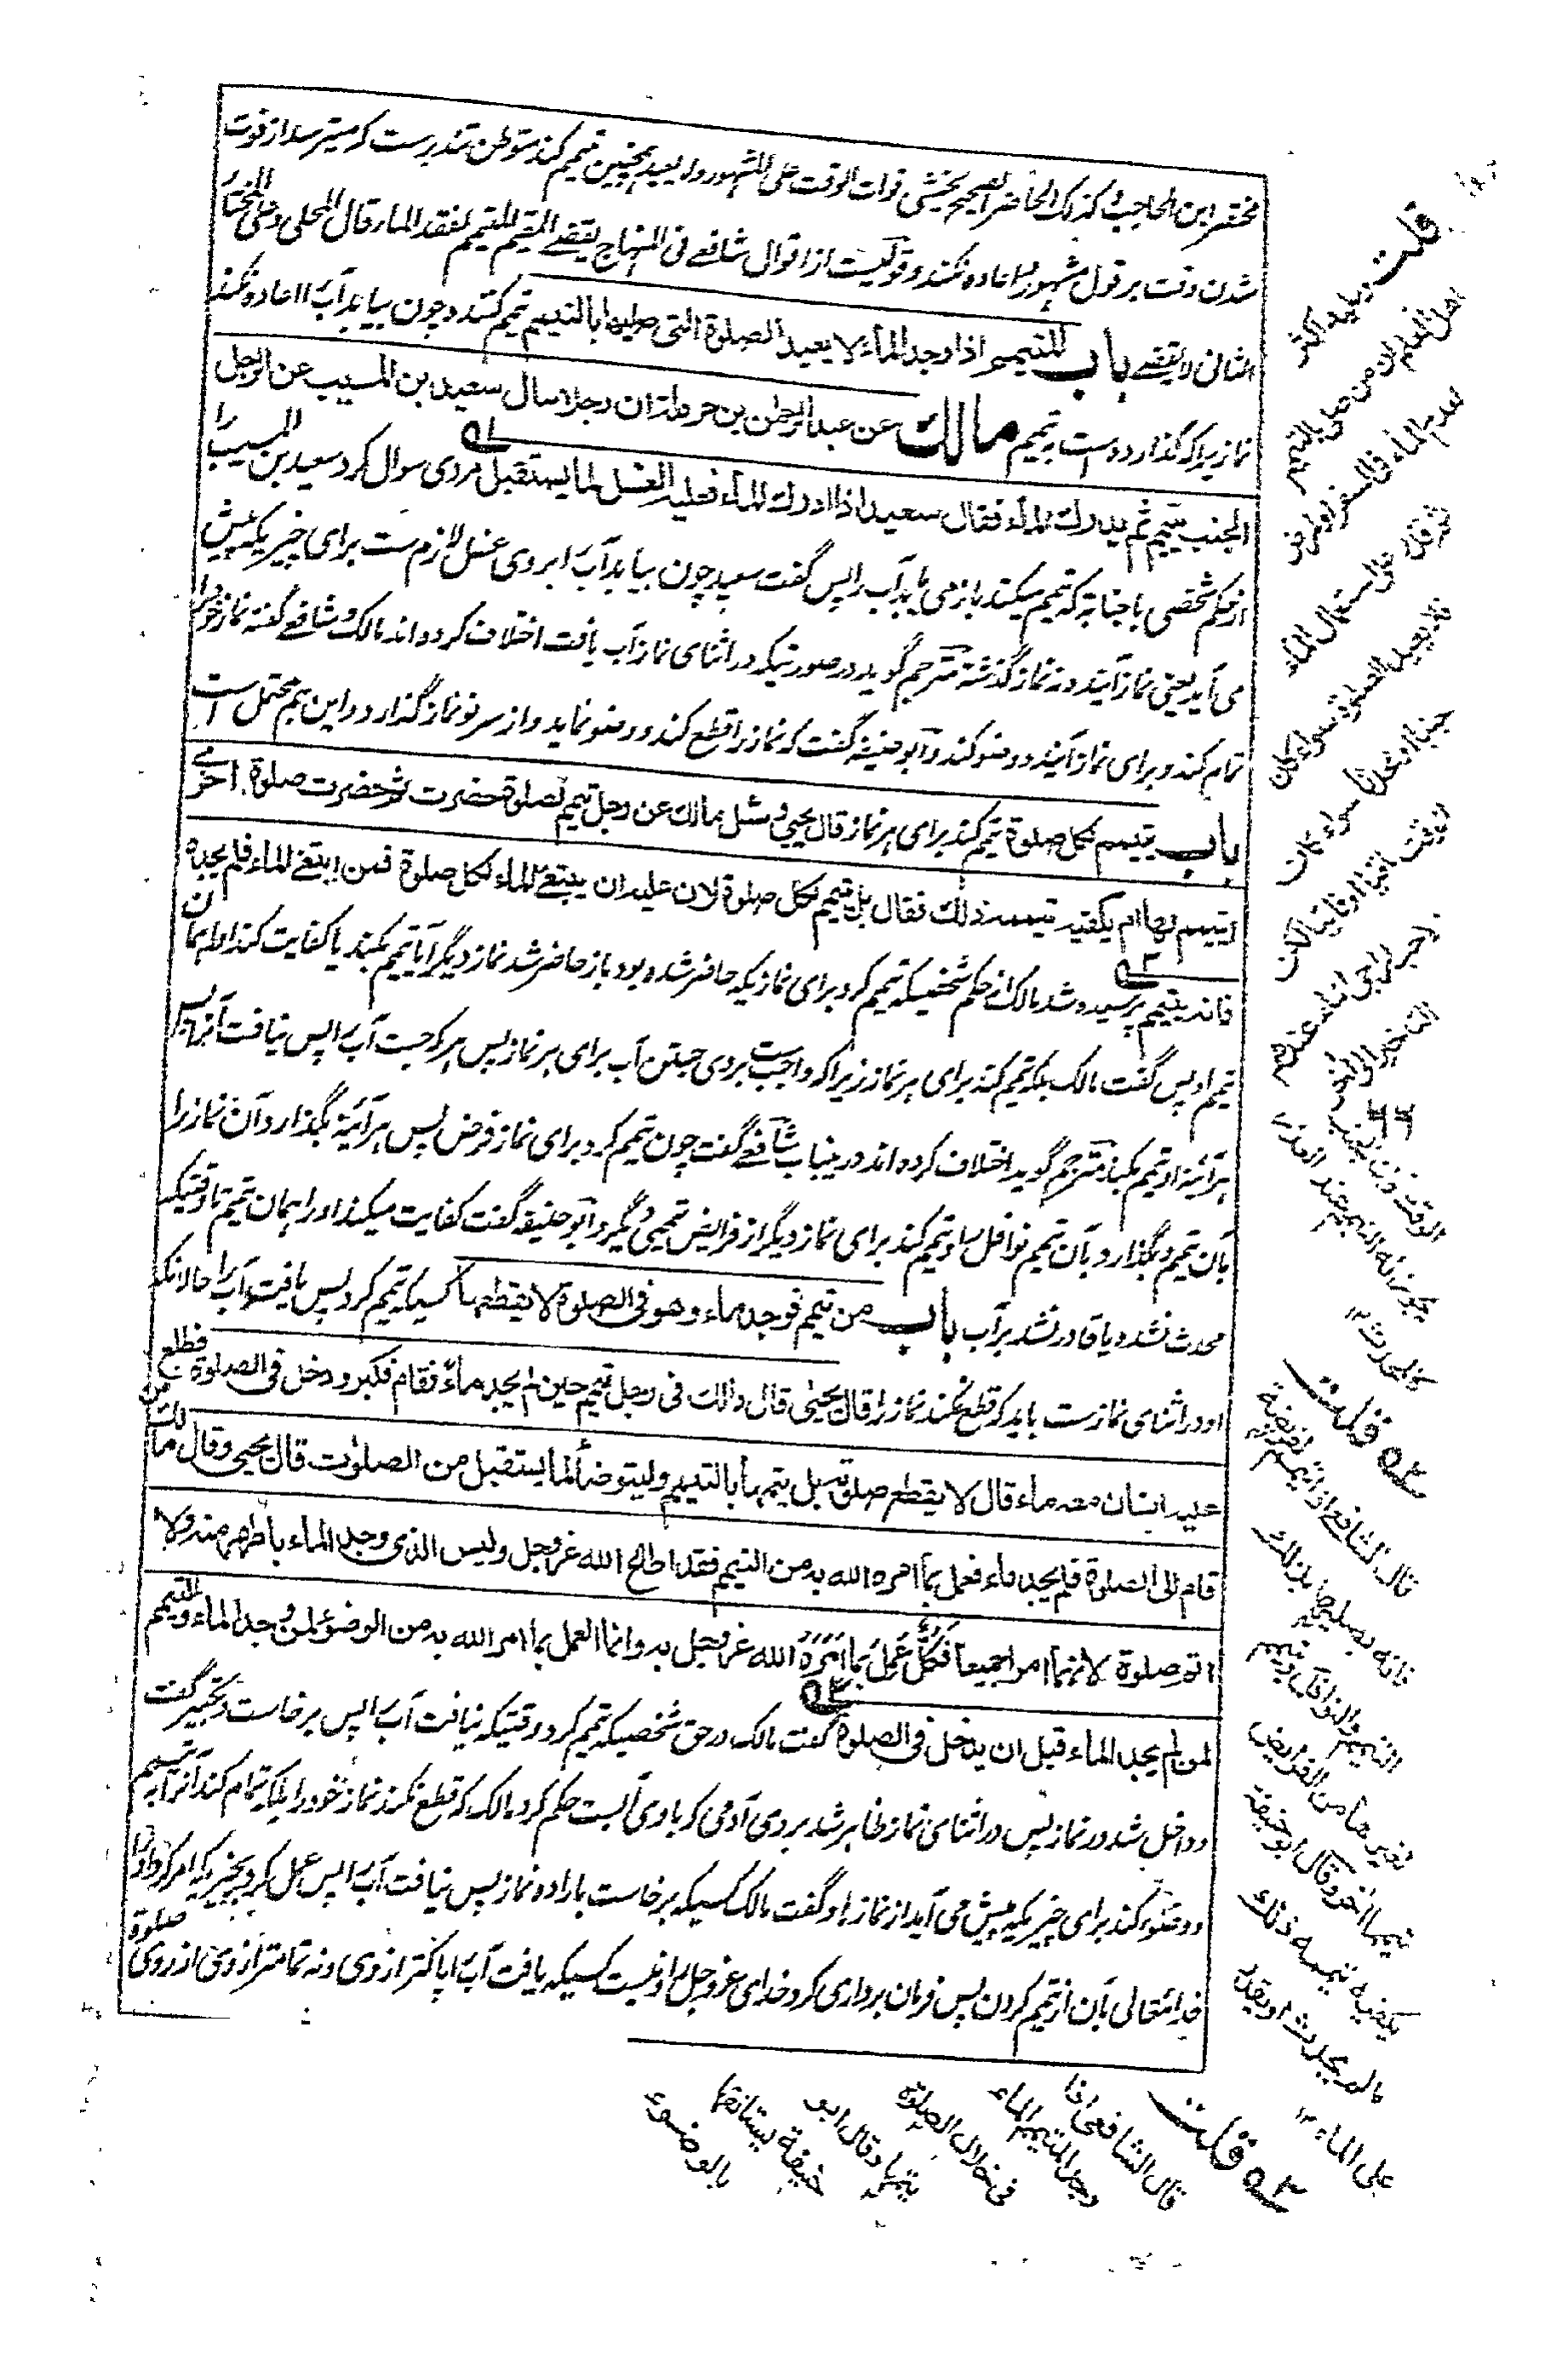 مختصر ابن الحاجب وکذلک الحاضر الصحیح یخشی فوات الوقت علی المشهور ولا یعید همچنین تیمم کند متوطن تندرست که میترسد از فوت
شدن وقت بر قول مشهور و اعاده نکند و قولیست از اقوال شافعے فی المنهاج یقضے المقیم المتیمم لفقد الماء قال المحلی وعلی المختار
الثانی لا یقضے باب المتیمم اذا وجد الماء لا یعید الصلوة التی صلیها بالتیمم تیمم کننده چون بیابد آب را اعاده نکند
نماز یرا که گذارده است به تیمم مالک عن عبد الرحمن بن حرملة ان رجلا سأل سعید بن المسیب عن الرجل
الجنب یتیمم ثم یدرك الماء فقال سعید اذا ادرك الماء فعلیه الغسل لما یستقبل مردی سوال کرد سعید بن المسیب را
از حکم شخصی با جنابة که تیمم میکند باز می یابد آب را پس گفت سعید چون بیابد آب را بر وی غسل لازم ست برای چیزیکه پیش
می آید یعنی نماز آینده نه نماز گذشته مترجم گوید در صورتیکه در اثنای نماز آب یافت اختلاف کرده اند مالک و شافعے گفته نماز خود را
تمام کند و برای نماز آینده وضو کند و ابو حنیفه گفت که نماز را قطع کند و وضو نماید و از سر نو نماز گذارد و این هم محتمل است
باب یتیمم لکل صلوة تیمم کند برای هر نماز قال یحیی وسئل مالك عن رجل تیمم لصلوة حضرت ثم حضرت صلوة اخرے
ایتیمم لها ام یکفیه تیممه ذلك فقال بل یتیمم لکل صلوة لان علیه ان یبتغے الماء لکل صلوة فمن ابتغے الماء فلم یجده
فانه یتیمم پرسیده شد مالک از حکم شخصیکه تیمم کرد برای نمازیکه حاضر شده بود باز حاضر شد نماز دیگر آیا تیمم بکند یا کفایت کند او را همان
تیمم او پس گفت مالک بلکه تیمم کند برای هر نماز زیرا که واجب ست بر وی جستن آب برای هر نماز پس هر که جست آب را پس نیافت آنرا پس
هر آئینه او تیمم بکند مترجم گوید اختلاف کرده اند درینباب شافعے گفت چون تیمم کرد برای نماز فرض پس هر آئینه بگذارد آن نماز را
بآن تیمم و بگذارد بآن تیمم نوافل را و تیمم کند برای نماز دیگر از فرایض تیممی دیگر و ابو حنیفه گفت کفایت میکند او را همان تیمم تا وقتیکه
محدث نشده یا قادر نشد بر آب باب من تیمم فوجد ماء وهو فی الصلوة لا یقطعها کسیکه تیمم کرد پس یافت آب را حالانکه
او در اثنای نماز ست باید که قطع نکند نماز را قال یحیی قال مالك فی رجل تیمم حین لم یجد ماءً فقام فکبر ودخل فی الصلوة فطلع
علیه انسان معه ماء قال لا یقطع صلوته بل یتمها بالتیمم ولیتوضأ لما یستقبل من الصلوات قال یحیی وقال مالك من
قام الی الصلوة فلم یجد ماء فعمل بما امره الله به من التیمم فقد اطاع الله عز وجل ولیس الذی وجد الماء باطهر منه ولا
اتم صلوة لانهما امرا جمیعا فکل عمل بما امره الله عز وجل به وانما العمل بما امر الله به من الوضوء لمن وجد الماء والتیمم
لمن لم یجد الماء قبل ان یدخل فی الصلوة گفت مالک در حق شخصیکه تیمم کرد وقتیکه نیافت آب را پس برخاست و تکبیر گفت
و داخل شد در نماز پس در اثنای نماز ظاهر شد بر وی آدمی که با وی آب ست حکم کرد مالک که قطع نکند نماز خود را بلکه تمام کند آنرا به تیمم
و وضوء کند برای چیزیکه پیش می آید از نماز ها و گفت مالک کسیکه برخاست باراده نماز پس نیافت آب را پس عمل کرد بچیزیکه امر کرد او را
خدا تعالی بآن از تیمم کردن پس فرمان برداری کرد خدای عز وجل را و نیست کسیکه یافت آب را پاکتر از وی و نه تمامتر از وی از روی صلوة
قلت وعلیه اکثر
اهل العلم ان من صلی بالتیمم
لعدم الماء فی السفر او لمرض
ثم قدر علی استعمال الماء
فلا یعید الصلوة سواء کان
جنبا او محدثا سواء کان
الوقت باقیا او فائتا لکن
التاخیر الی آخر
الوقت
یجوز له التیمم عند العذر
کالمحدث ۱۲
۵۲ قلت
قال الشافعے اذا تیمم لفریضة
فانه یصلیها بذلك
التیمم والنوافل ویتیمم
لغیرها من الفرایض
تیمما آخر وقال ابو حنیفة
یکفیه تیممه ذلك
ما لم یحدث او یقدر
علی الماء ۱۲
۵۳ قلت
قال الشافعی اذا
وجد المتیمم الماء
فی خلال الصلوة
یتمها وقال ابو
حنیفة یستانفها
بالوضوء